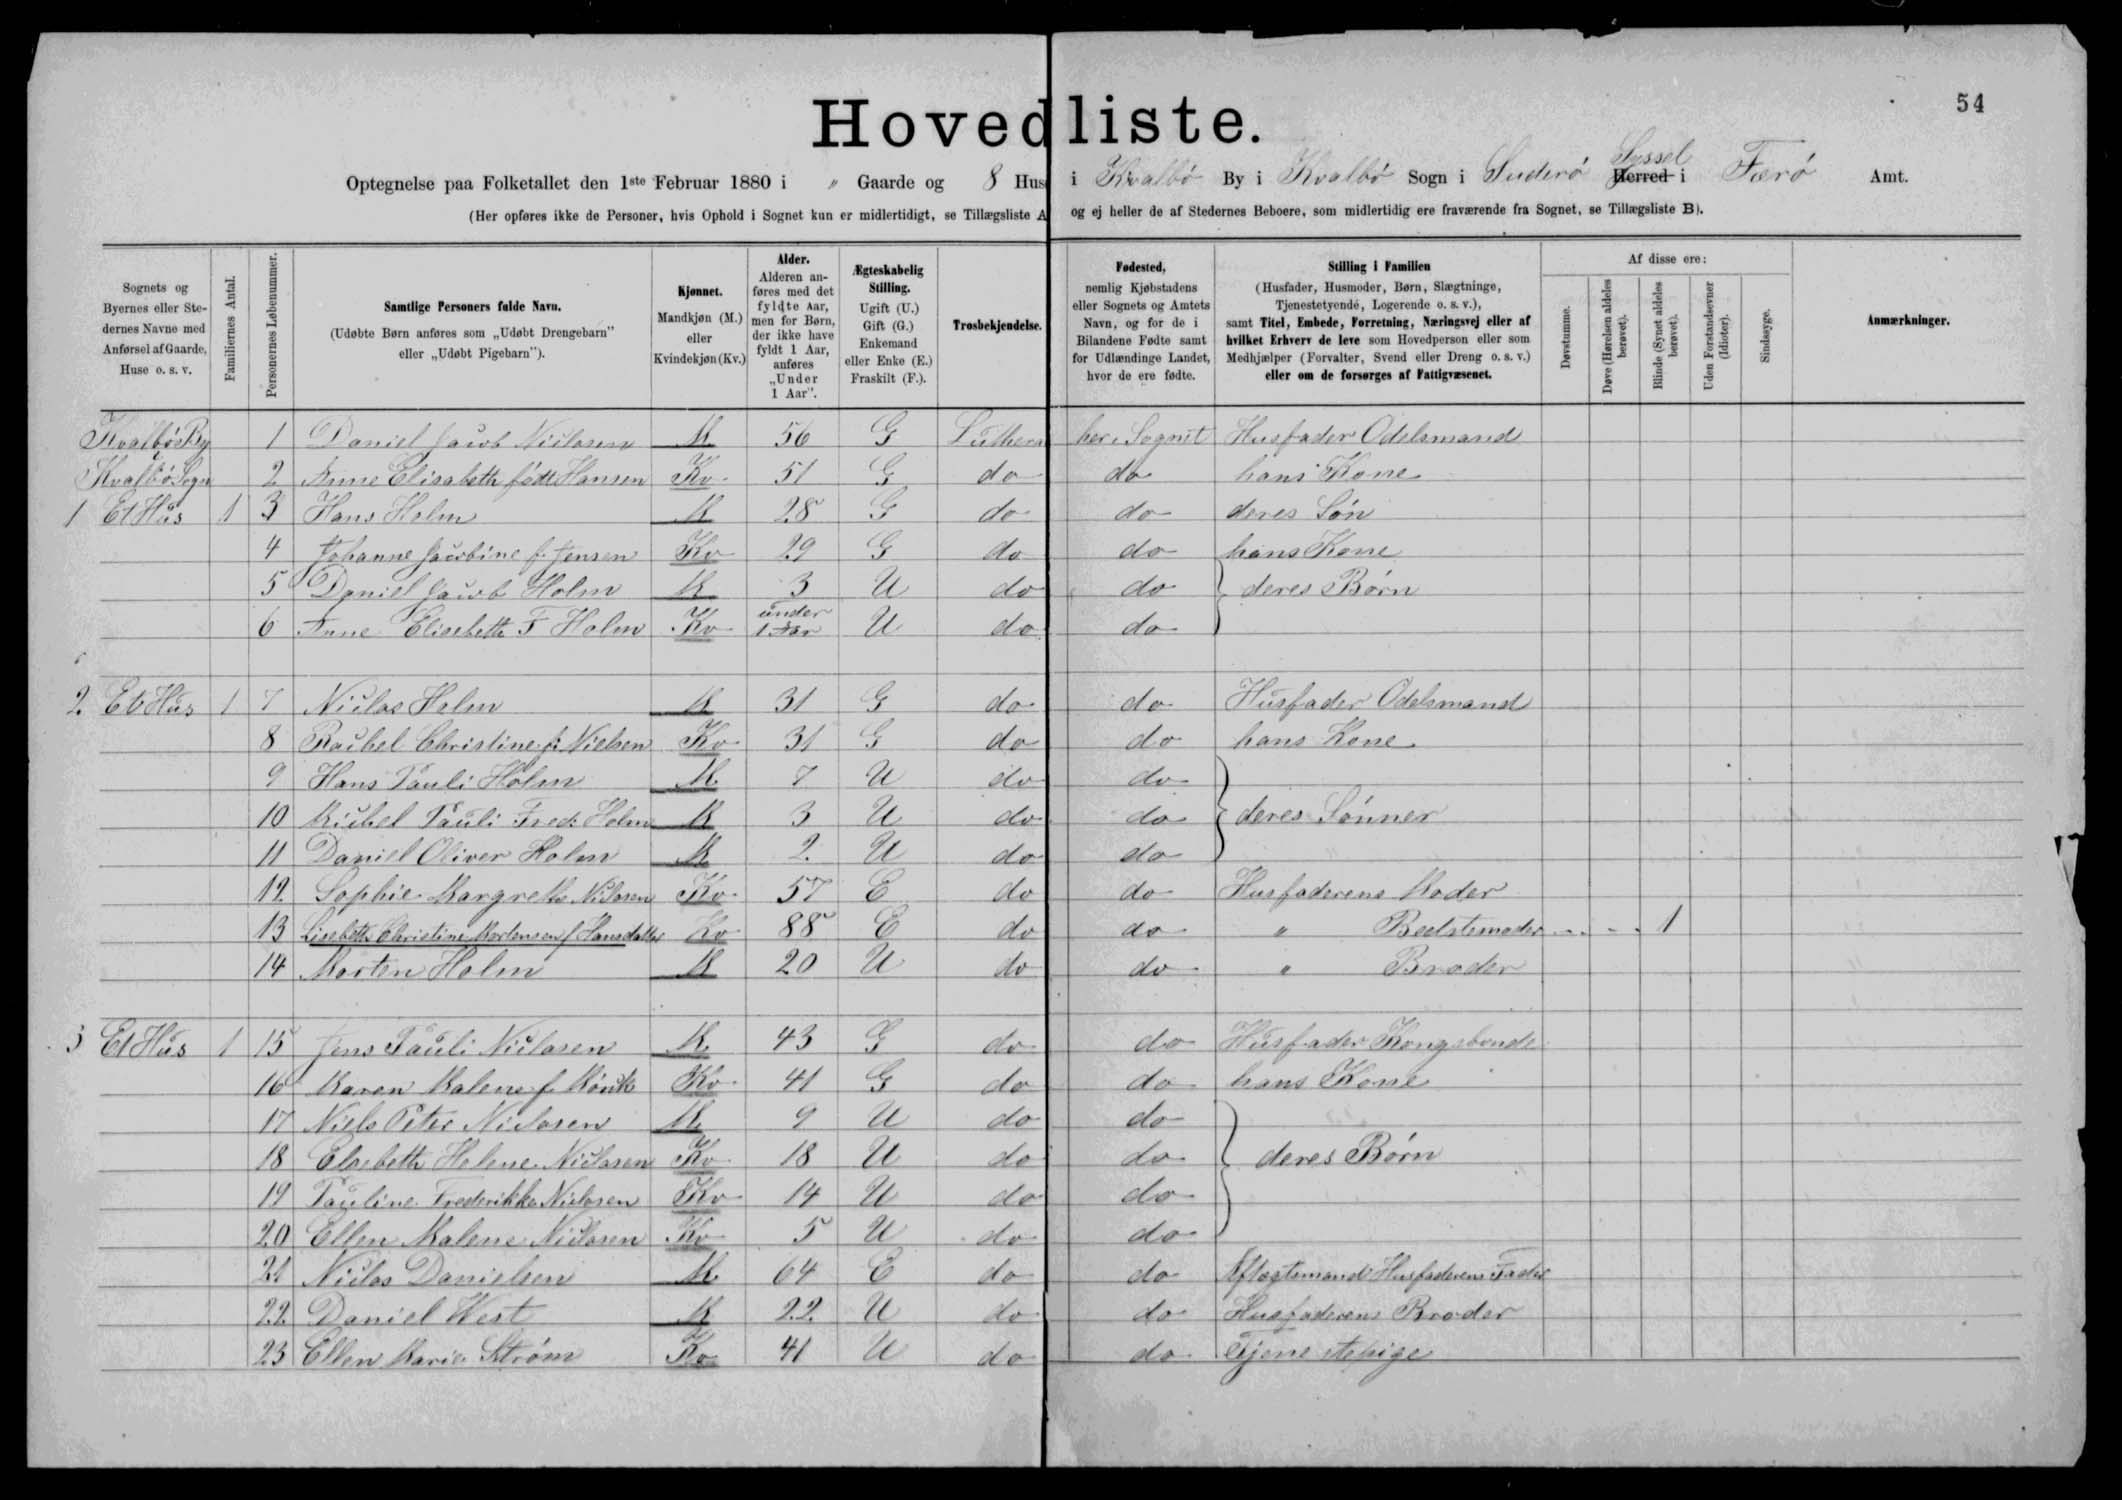 54
Hovedliste.
Optegnelse paa Folketallet den 1ste Februar 1880 i " Gaarde og 8 Hus i Kvalbø By i Kvalbø Sogn i Suderø Syssel Herred i Færø Amt.
(Her opføres ikke de Personer, hvis Ophold i Sognet kun er midlertidigt, se Tillægsliste A og ej heller de af Stedernes Beboere, som midlertidig ere fraværende fra Sognet, se Tillægsliste B).
Sognets og Byernes eller Stedernes Navne med Anførsel af Gaarde, Huse o. s. v.
Familiernes Antal.
Personernes Løbenummer.
Samtlige Personers fulde Navn.
(Udøbte Børn anføres som „Udøbt Drengebarn" eller „Udøbt Pigebarn").
Kjønnet.
Mandkjøn (M.) eller Kvindekjøn (Kv.)
Alder.
Alderen anføres med det fyldte Aar, men for Børn, der ikke have fyldt 1 Aar, anføres „Under 1 Aar".
Ægteskabelig Stilling.
Ugift (U.) Gift (G.) Enkemand eller Enke (E.) Fraskilt (F.).
Trosbekjendelse.
Fødested,
nemlig Kjøbstadens eller Sognets og Amtets Navn, og for de i Bilandene Fødte samt for Udlændinge Landet, hvor de ere fødte.
Stilling i Familien
(Husfader, Husmoder, Børn, Slægtninge, Tjenestetyende, Logerende o. s. v.),
samt Titel, Embede, Forretning, Næringsvej eller af hvilket Erhverv de leve som Hovedperson eller som Medhjælper (Forvalter, Svend eller Dreng o. s. v.) eller om de forsørges af Fattigvæsenet.
Af disse ere:
Døvstumme.
Døve (Hørelsen aldeles berøvet).
Blinde (Synet aldeles berøvet).
Uden Forstandsevner (Idioter).
Sindssyge.
Anmærkninger.
Kvalbø By 1 Daniel Jacob Niclasen M 56 G Luthera her i Sognet Husfader Odelsmand
Kvalbø Sogn 2 Anne Elisabeth født Hansen Kv 51 G do do hans Kone
1 Et Hus 1 3 Hans Holm M 28 G do do deres Søn
4 Johanne Jacobine f. Jensen Kv 29 G do do hans Kone
5 Daniel Jacob Holm M 3 U do do deres Børn
6 Anne Elisebeth F Holm Kv under 1 Aar U do do
2 Et Hus 1 7 Niclas Holm M 31 G do do Husfader Odelsmand
8 Rachel Christine f. Nielsen Kv 31 G do do hans Kone
9 Hans Pauli Holm M 7 U do do
10 Michel Pauli Fred: Holm M 3 U do do deres Sønner
11 Daniel Oliver Holm M 2 U do do
12 Sophie Margrethe Niclasen Kv 57 E do do Husfaderens Moder
13 Lisebeth Christine Mortensen f Hansdatter Kv 88 E do do " Bedstemoder 1
14 Morten Holm M 20 U do do " Broder
3 Et Hus 1 15 Jens Pauli Niclasen M 43 G do do Husfader Kongsbonde
16 Karen Malene f. Mørck Kv 41 G do do hans Kone
17 Niels Peter Niclasen M 9 U do do
18 Elsebeth Helene Niclasen Kv 18 U do do deres Børn
19 Pauline Frederikke Niclasen Kv 14 U do do
20 Ellen Malene Niclasen Kv 5 U do do
21 Niclas Danielsen M 64 E do do Aftægtsmand Husfaderens Fader
22 Daniel West M 22 U do do Husfaderens Broder
23 Ellen Marie Strøm Kv 41 U do do Tjenestepige